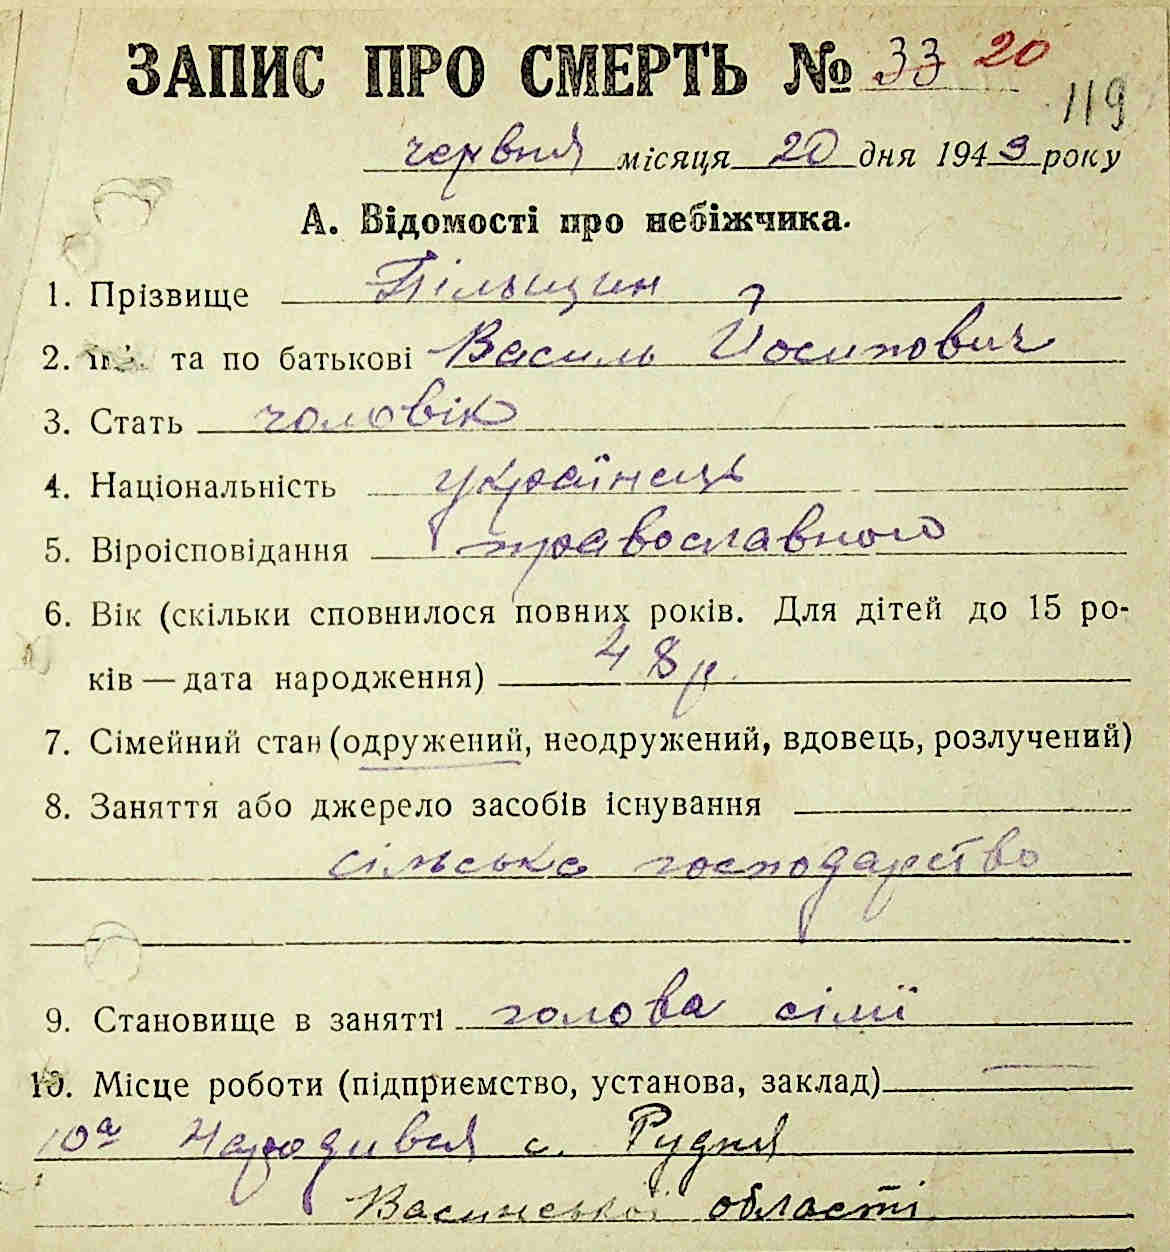 ЗАПИС ПРО СМЕРТЬ № 33 20
119
червня місяця 20 дня 1943 року
А. Відомості про небіжчика.
1. Прізвище
2. та по батькові Василь Йосипович
3. Стать чоловік
4. Національність українець
5. Віроісповідання православного
6. Вік (скільки сповнилося повних років. Для дітей до 15 ро-
ків — дата народження) 48 р.
7. Сімейний стан (одружений, неодружений, вдовець, розлучений)
8. Заняття або джерело засобів існування
сільське господарство
9. Становище в занятті голова сімї
10. Місце роботи (підприємство, установа, заклад)
10а Народився с. Рудня
області